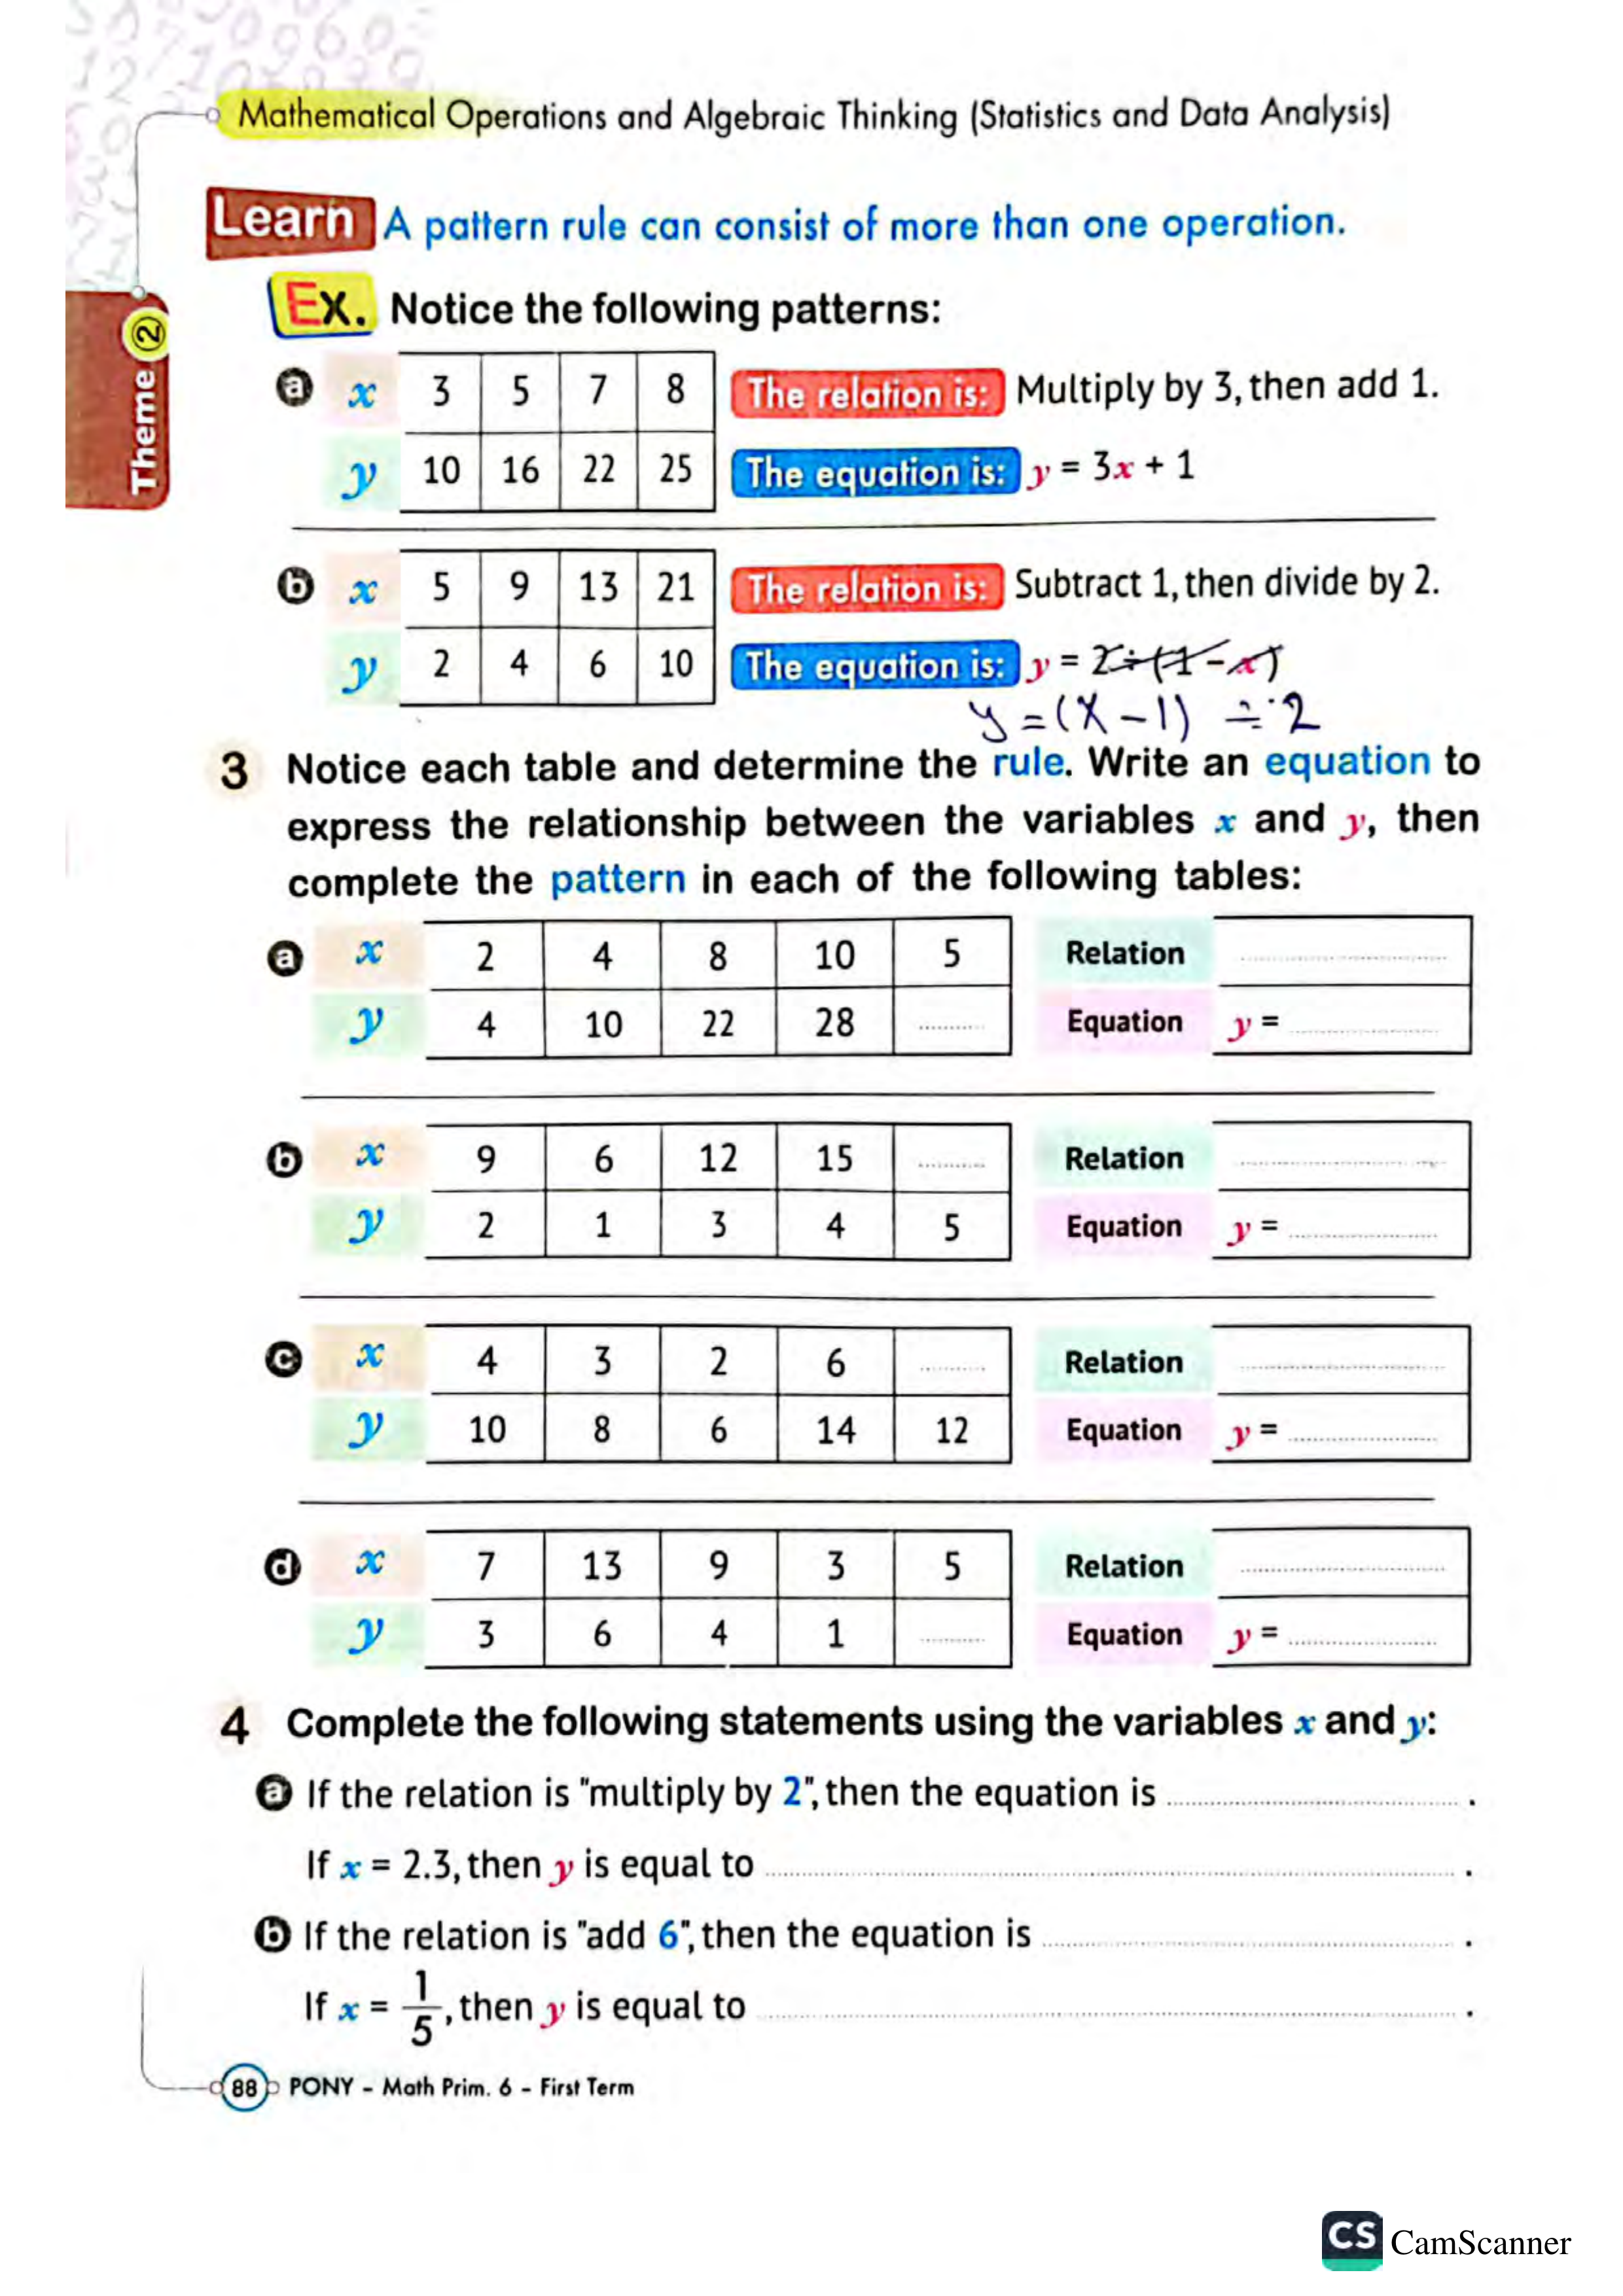 Mathematical Operations and Algebraic Thinking (Statistics and Data Analysis)
Theme 2
Learn A pattern rule can consist of more than one operation.
Ex. Notice the following patterns:
a x 3 5 7 8 The relation is: Multiply by 3, then add 1.
y 10 16 22 25 The equation is: y = 3x + 1
b x 5 9 13 21 The relation is: Subtract 1, then divide by 2.
y 2 4 6 10 The equation is: y = 2÷(1-x)
y = (x-1) ÷ 2
3 Notice each table and determine the rule. Write an equation to
express the relationship between the variables x and y, then
complete the pattern in each of the following tables:
a x 2 4 8 10 5 Relation ..........
y 4 10 22 28 .......... Equation y = ..........
b x 9 6 12 15 .......... Relation ..........
y 2 1 3 4 5 Equation y = ..........
c x 4 3 2 6 .......... Relation ..........
y 10 8 6 14 12 Equation y = ..........
d x 7 13 9 3 5 Relation ..........
y 3 6 4 1 .......... Equation y = ..........
4 Complete the following statements using the variables x and y:
a If the relation is "multiply by 2", then the equation is .......... .
If x = 2.3, then y is equal to .......... .
b If the relation is "add 6", then the equation is .......... .
If x = 1/5, then y is equal to .......... .
88 PONY - Math Prim. 6 - First Term
CS CamScanner